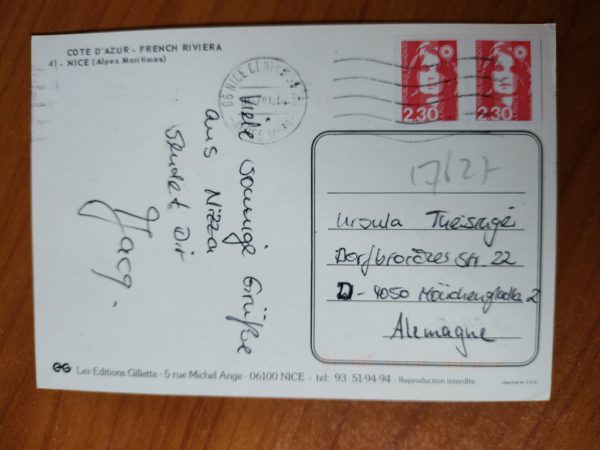 COTE D'AZUR - FRENCH RIVIERA
41 - NICE (Alpes Maritimes)
06 NICE
2,30
2,30
Viele sonnige Grüße
aus Nizza
sendet Dir
Jacq.
17/27
Ursula
Str. 22
D - 4050 2
Alemagne
EG Les Editions Gilletta - 5 rue Michel Ange - 06100 NICE - tel: 93 51-94-94 - Reproduction interdite